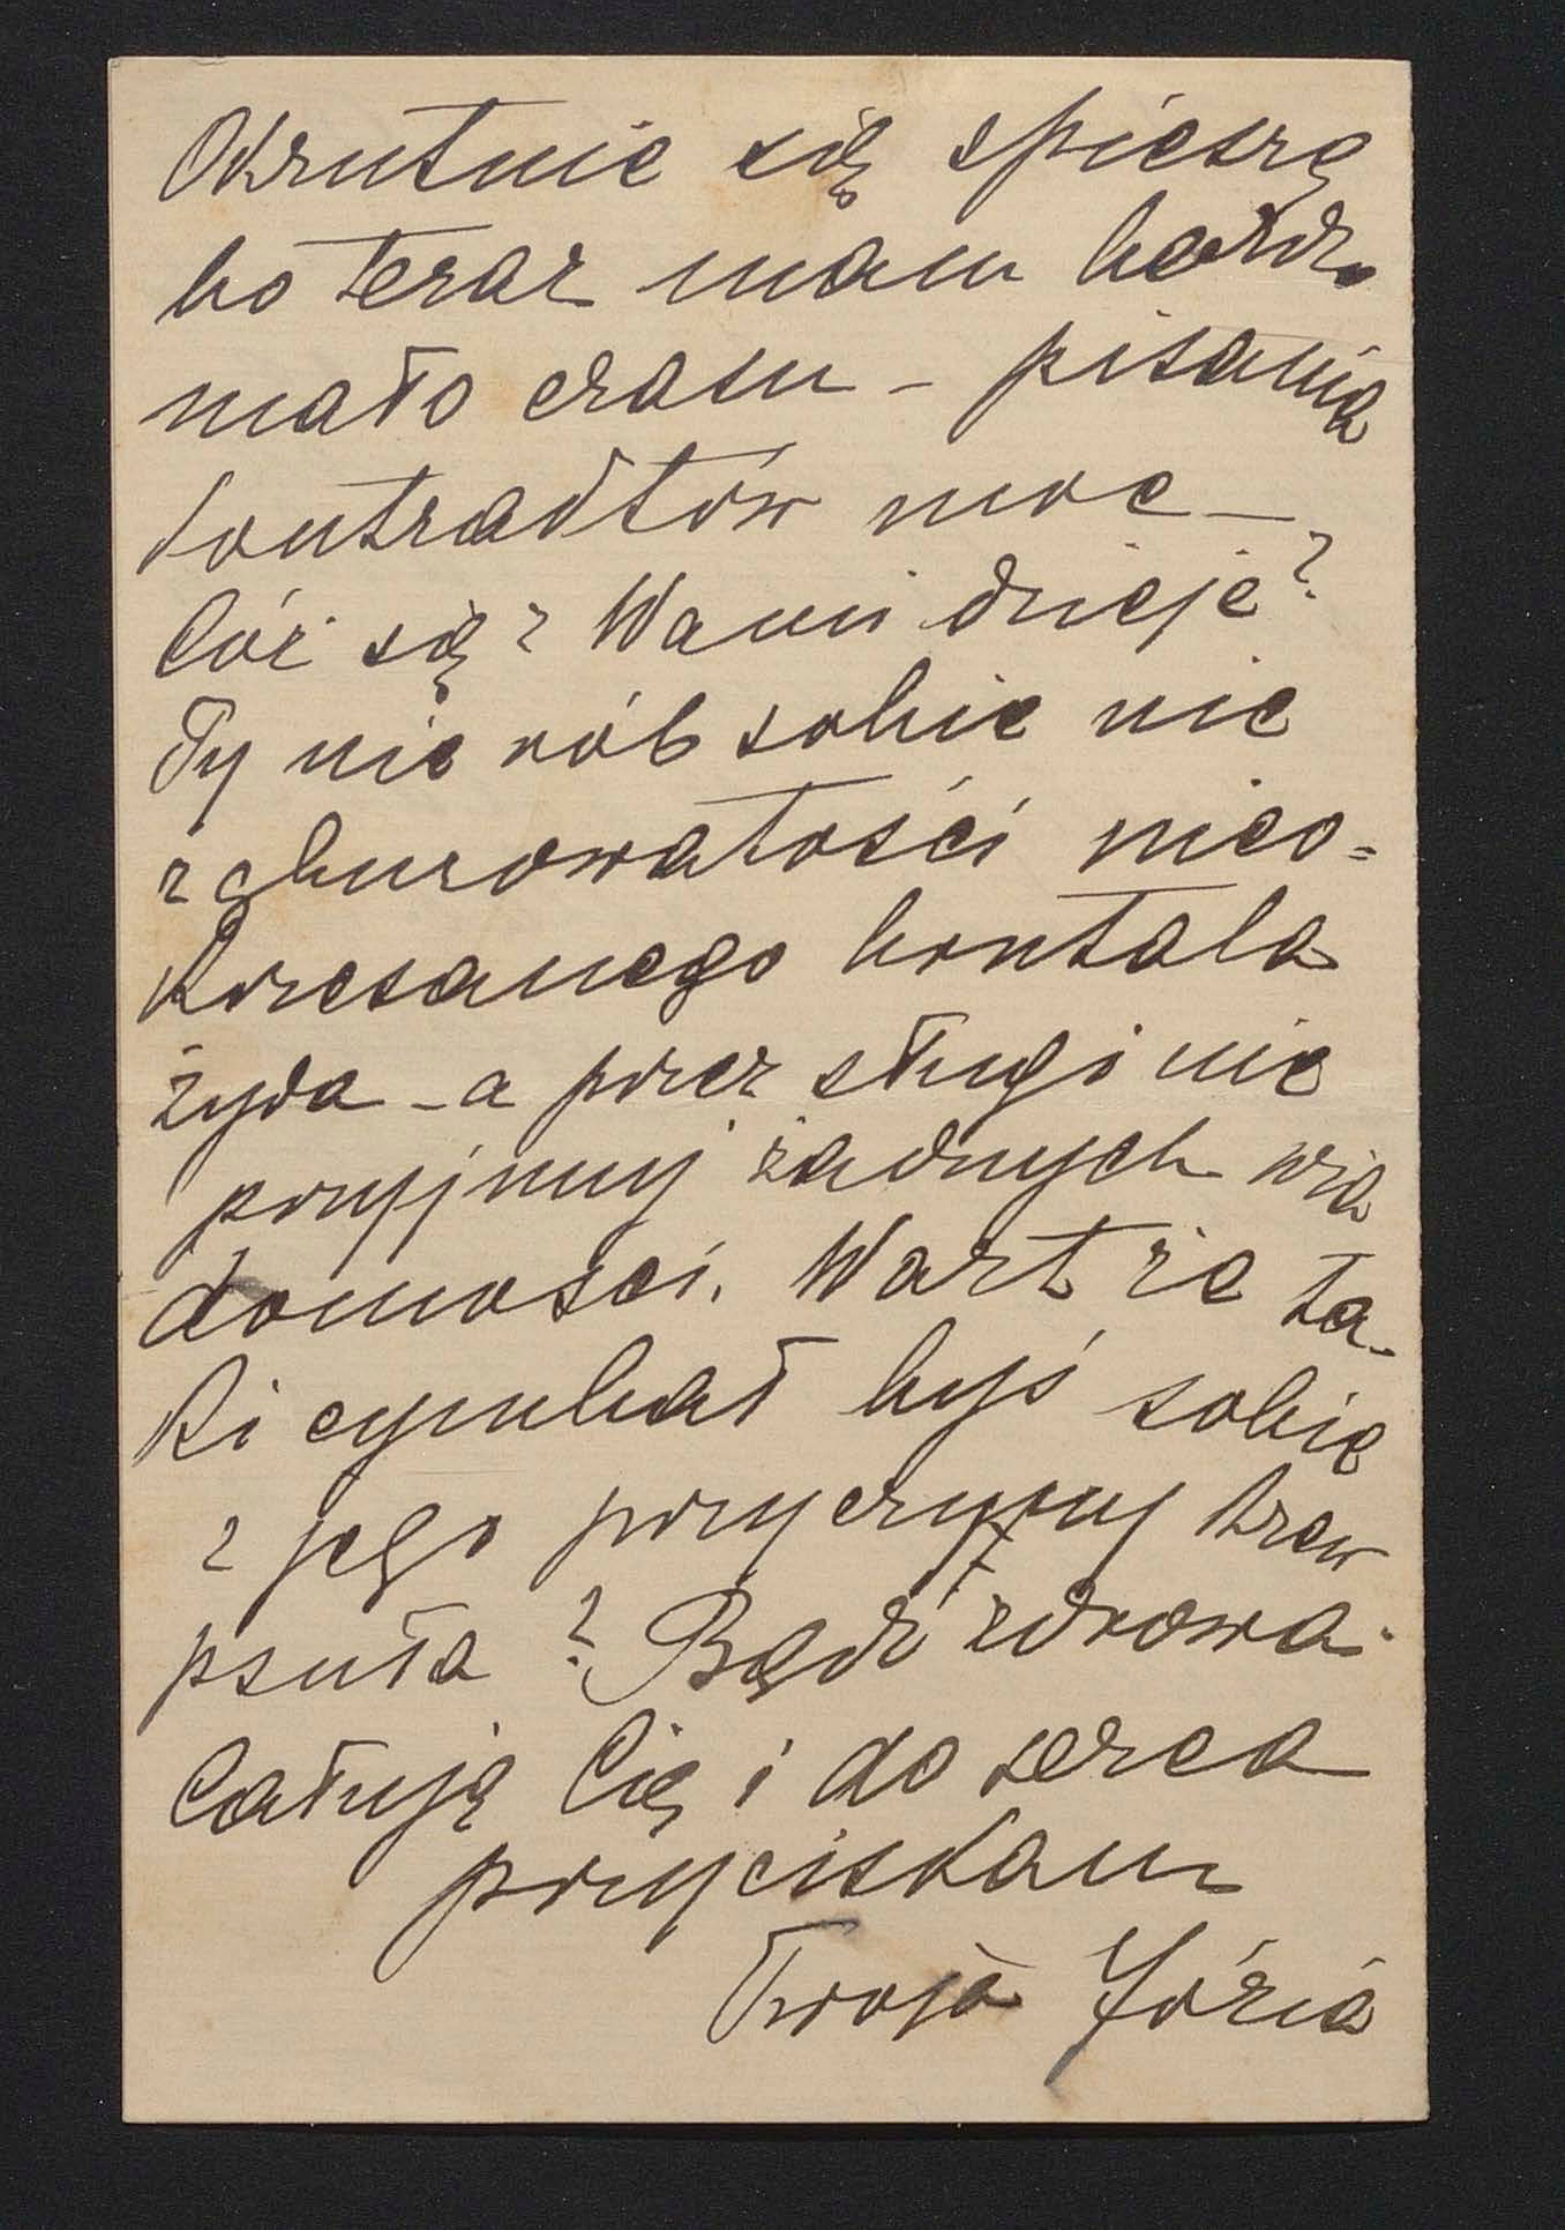 Okrutnie się spieszę
bo teraz mam bardzo
mało czasu – pisania
kontraktów moc –
Cóż się z Wami dzieje?
Ty nie rób sobie nic
z gburowatości nieo=
krzesanego
żyda – a przez sługi nie
przyjmuj żadnych wia
domości. Wart że ta-
ki cymbał byś sobie
z jego przyczyny krew
psuła? Bądź zdrowa.
Całuję Cię i do serca
przyciskam
Twoja Józia